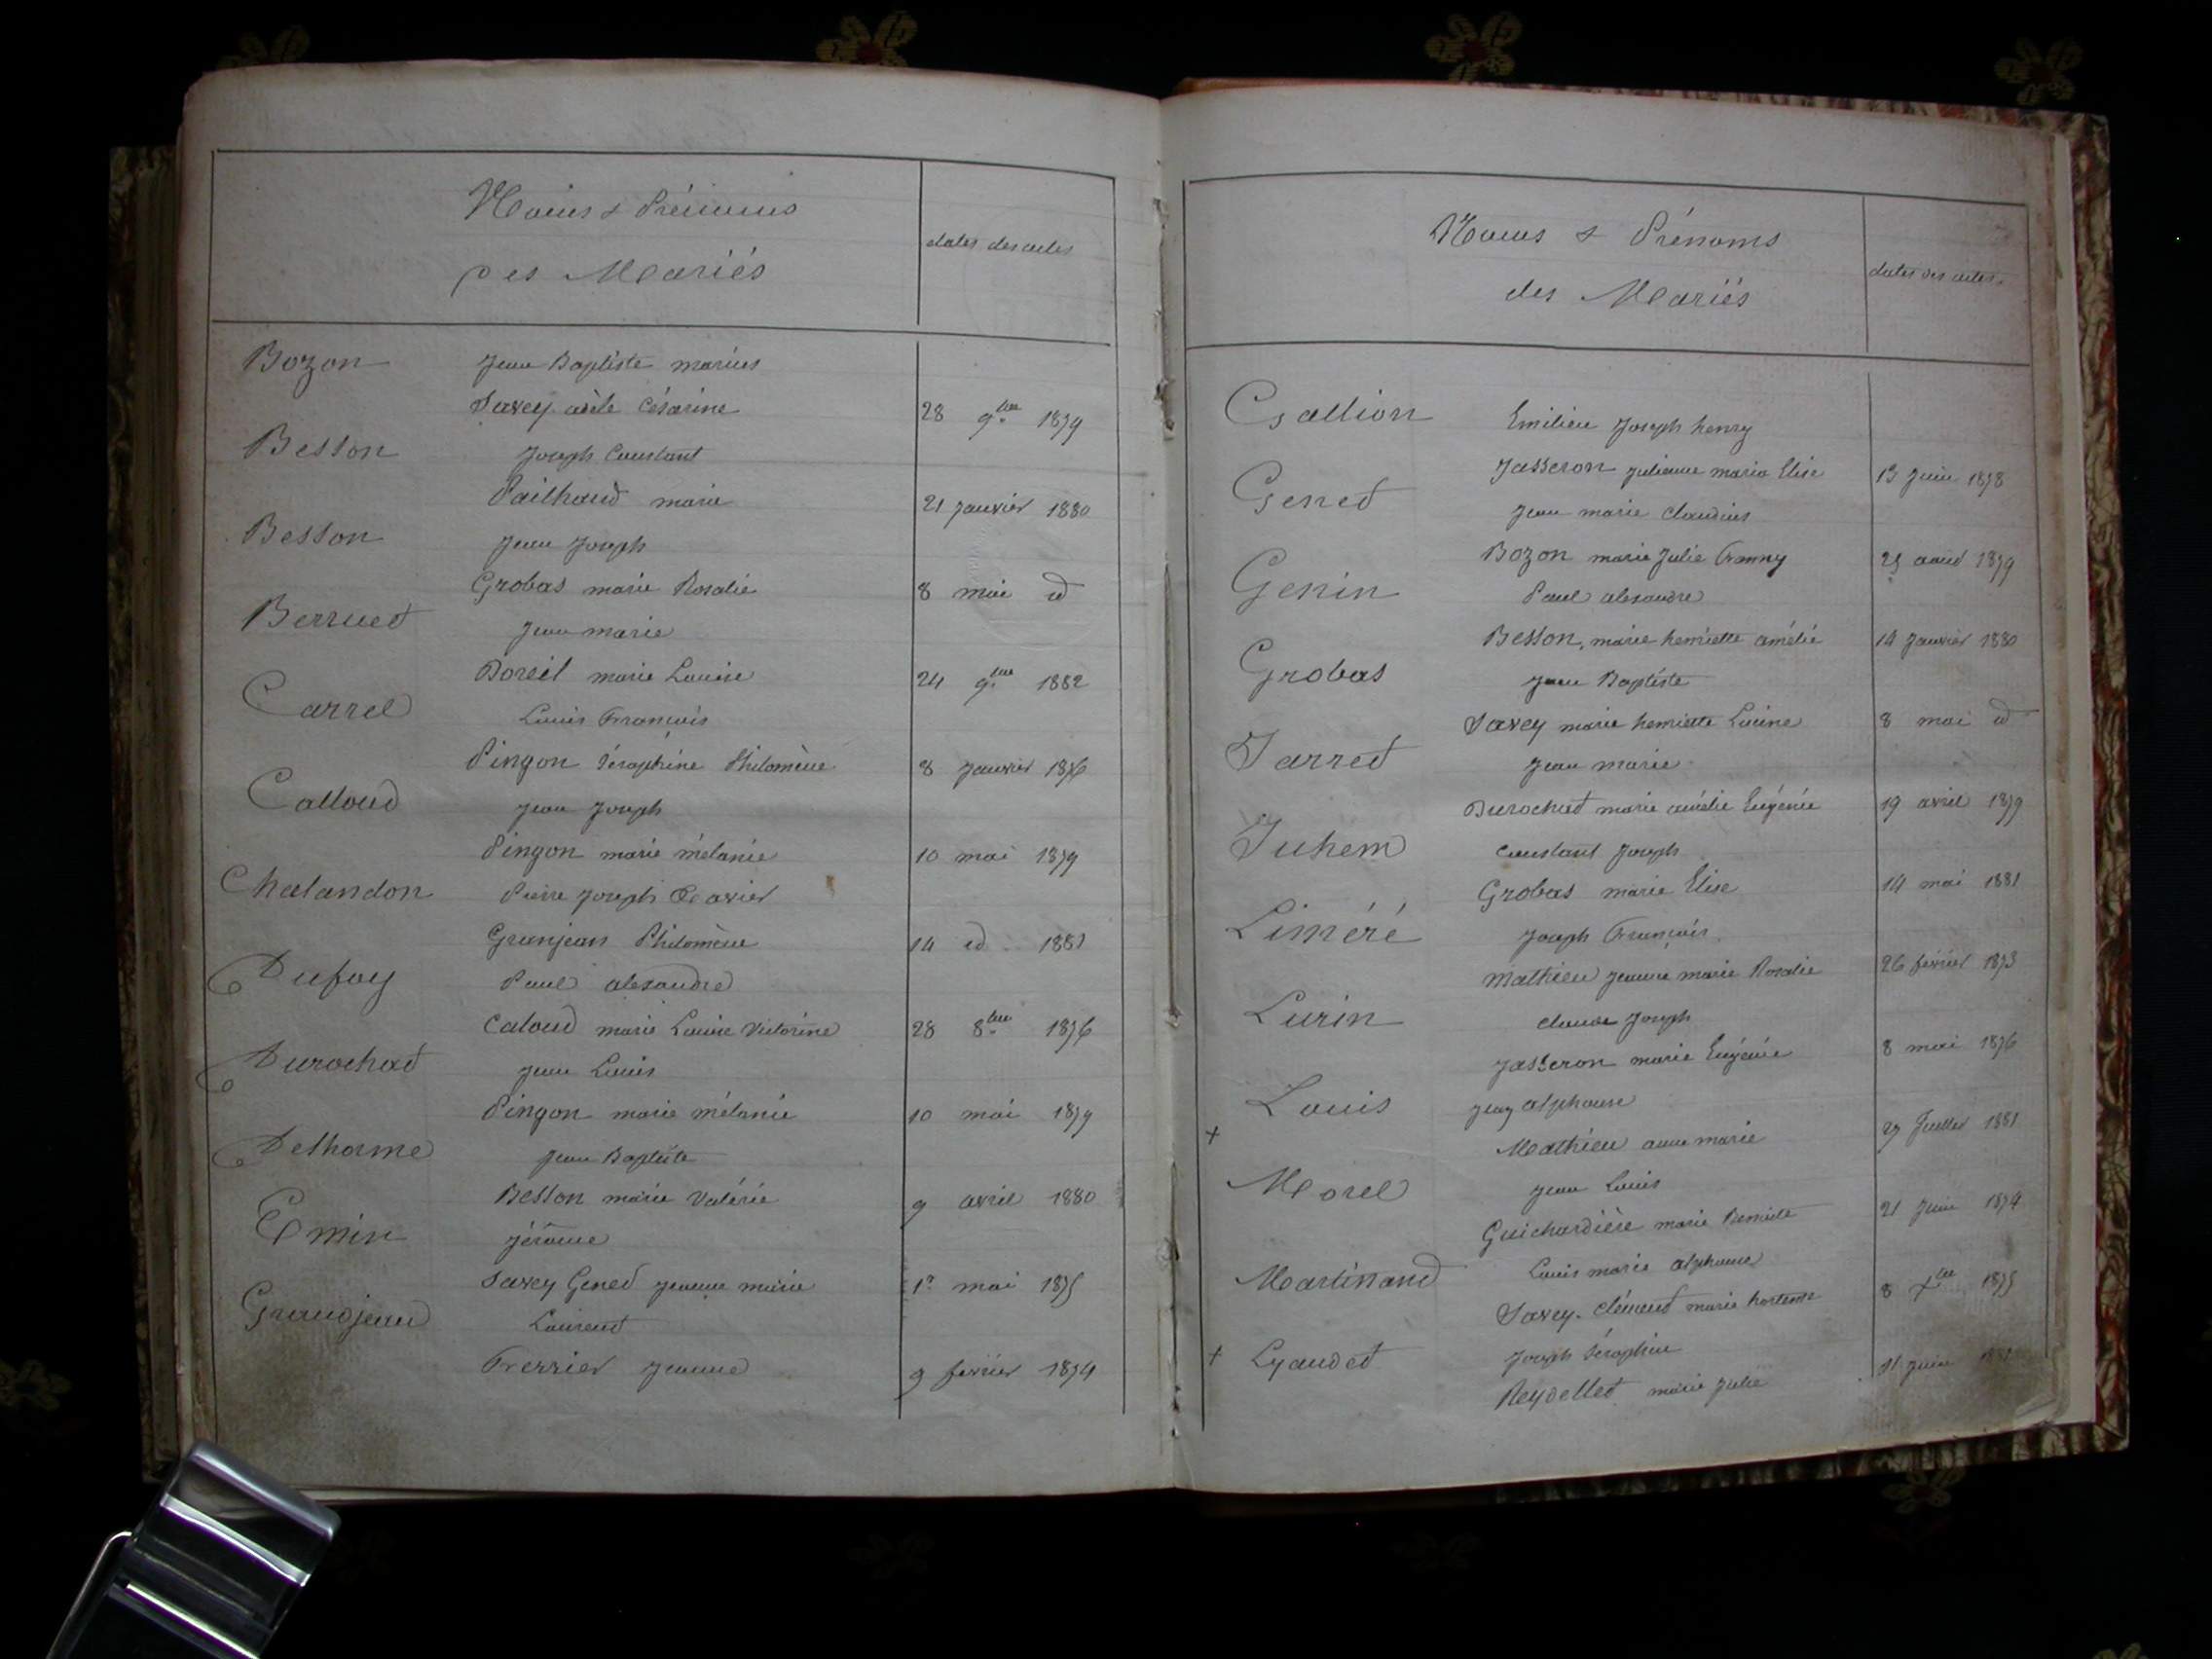 Noms & Prénoms
des Mariés
dates des actes
Bozon Jean Baptiste marius
Savey adèle Césarine 28 9bre 1879
Besson Joseph Constant
Pailhaud marie 21 Janvier 1880
Besson Jean Joseph
Grobas marie Rosalie 8 mai id
Berruet Jean marie
Borcil marie Louise 24 9bre 1882
Carrel Louis François
Pingon Séraphine Philomène 8 Janvier 1876
Calloud Jean Joseph
Pingon marie mélanie 10 mai 1879
Chalandon Pierre Joseph Xavier
Granjean Philomène 14 id 1881
Dufay Paul alexandre
Caloud marie Louise Victorine 28 8bre 1876
Durochat Jean Louis
Pingon marie mélanie 10 mai 1879
Delhorme Jean Baptiste
Besson marie Valérie 9 avril 1880
Emin Jérôme
Savey Gened Jeanne marie 1er mai 1875
Grandjean Laurent
Ferrier Jeanne 9 février 1874
Noms & Prénoms
des Mariés
dates des actes
Gallion Emilien Joseph henry
Jasseron Julienne maria Elise 13 Juin 1878
Gened Jean marie Claudius
Bozon marie Julie Fanny 25 aout 1879
Genin Paul alexandre
Besson, marie henriette amélie 14 Janvier 1880
Grobas Jean Baptiste
Savey marie henriette Lucine 8 mai id
Jarret Jean marie
Durochat marie amélie Eugénie 19 avril 1879
Juhem Constant Joseph
Grobas marie Elise 14 mai 1881
Liméré Joseph François
Mathieu Jeanne marie Rosalie 26 février 1873
Lurin Claude Joseph
Jasseron marie Eugénie 8 mai 1876
Louis Jeay alphonse
+ Mathieu anne marie 27 Juillet 1881
Morel Jean Louis
Guichardière marie Benoite 21 Juin 1874
Martinand Louis marie alphonse
Savey. Clémend marie hortense 8 Xbre 1875
+ Lyaudet Joseph Séraphin
Reydellet marie Julie 11 Juin